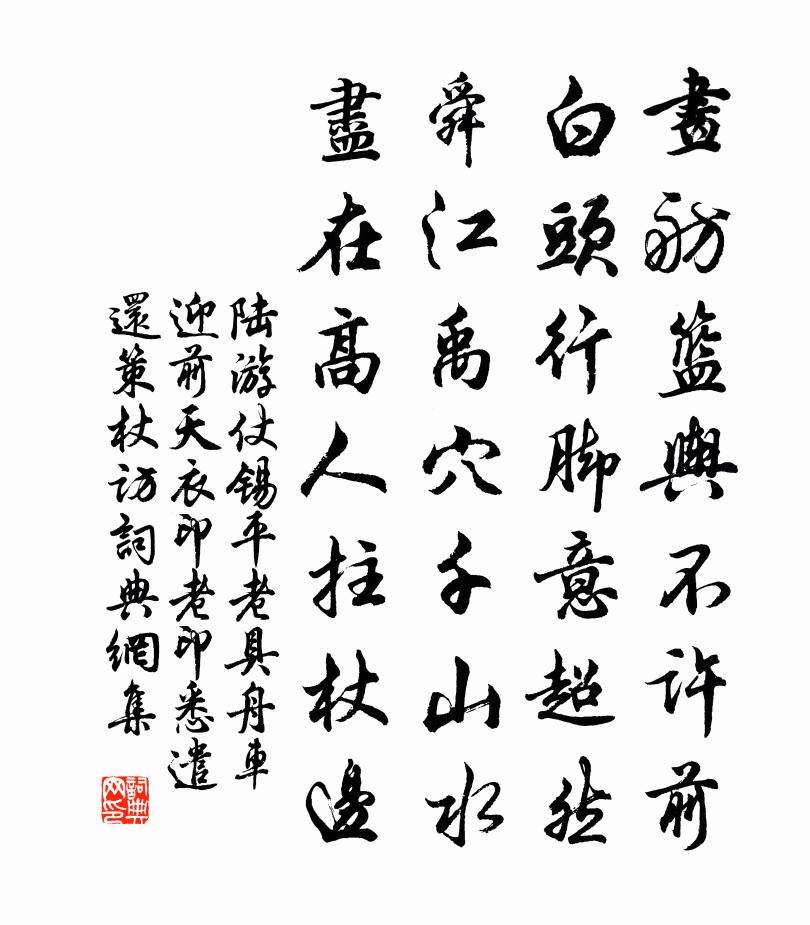 畫舫籃輿不許前
白頭行脚意超然
舜江禹穴千山水
盡在高人拄杖邊
陆游仗錫平老具舟車
迎前天衣印老印悉遣
還策杖訪詞典網集
詞典网印